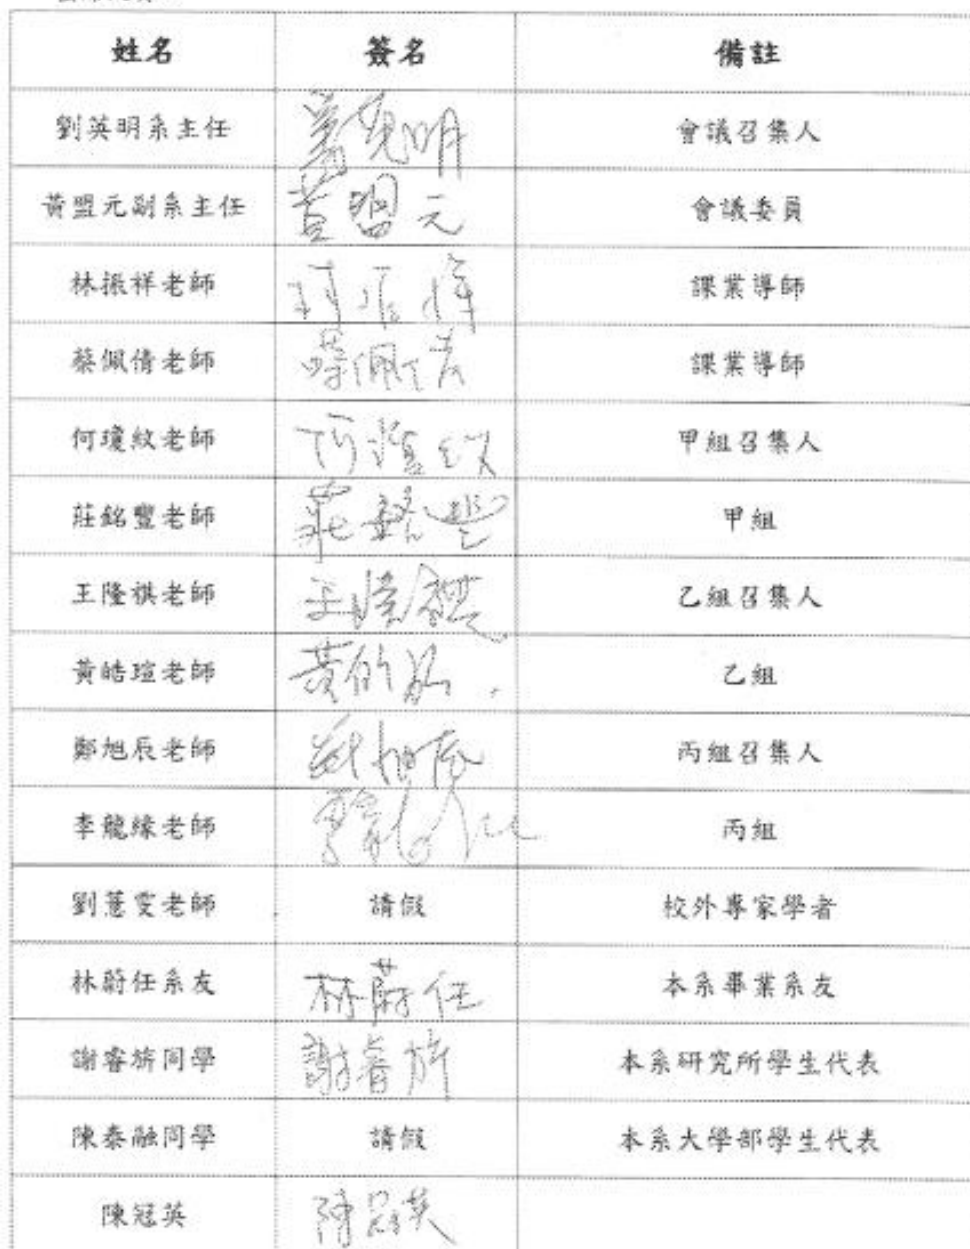 姓名 簽名 備註
劉英明系主任 會議召集人
黃盟元副系主任 黃盟元 會議委員
林振祥老師 課業導師
蔡佩倩老師 蔡佩倩 課業導師
何瓊紋老師 何瓊紋 甲組召集人
莊銘豐老師 莊銘豐 甲組
王隆祺老師 王隆祺 乙組召集人
黃皓瑄老師 乙組
鄭旭辰老師 鄭旭辰 丙組召集人
李龍緣老師 李龍緣 丙組
劉薏雯老師 請假 校外專家學者
林蔚任系友 林蔚任 本系畢業系友
謝睿旂同學 謝睿旂 本系研究所學生代表
陳泰融同學 請假 本系大學部學生代表
陳冠英 陳冠英